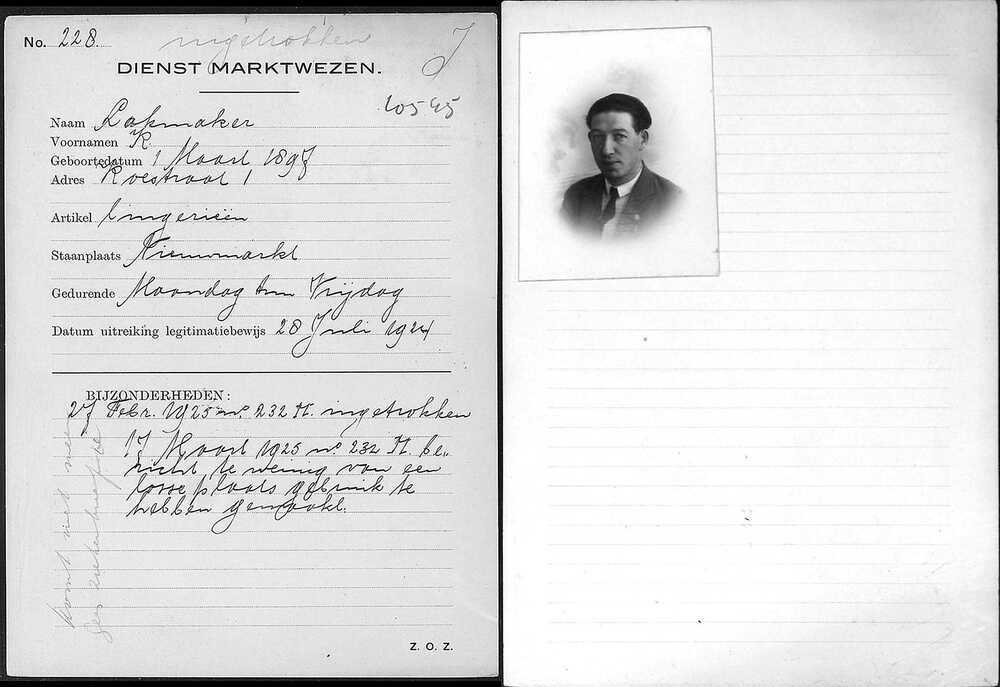 No. 228. ingetrokken J
DIENST MARKTWEZEN.
10545
Naam Lakmaker
Voornamen K.
Geboortedatum 1 Maart 1897
Adres Roestraat 1
Artikel lingerieën
Staanplaats Nieuwmarkt
Gedurende Maandag t/m Vrijdag
Datum uitreiking legitimatiebewijs 28 Juli 1924
BIJZONDERHEDEN:
27 Febr. 1925 no. 232 M. ingetrokken
17 Maart 1925 no. 232 M. be-
richt te weinig van een
losse plaats gebruik te
hebben gemaakt.
komt niet meer
Z. O. Z.